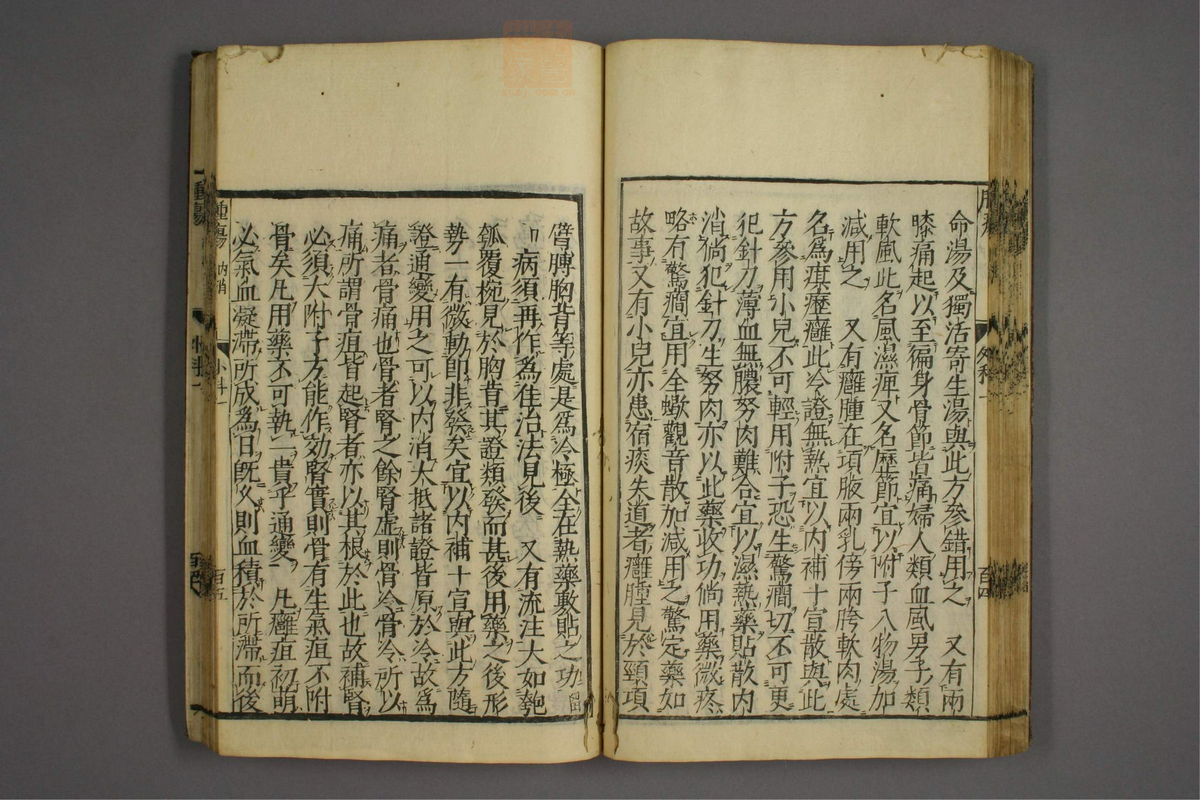 命湯及獨活寄生湯與此方參錯用之　又有兩
膝痛起以至徧身骨節皆痛婦人類血風男子類
軟風此名風濕痺又名歷節宜以附子入物湯加
減用之　又有癰腫在項腋兩乳傍兩胯軟肉處
名爲㾾癧癰此冷證無熱宜以内補十宣散與此
方參用小兒不可輕用附子恐生驚癎切不可更
犯針刀薄血無膿努肉難合宜以濕熱藥貼散内
消倘犯針刀生努肉亦以此藥收功倘用藥微疼
略有驚癎宜用全蠍觀音散加減用之驚定藥如
故事又有小兒亦患宿痰失道者癰腫見於頸項
臂膊胸背等處是爲冷極全在熱藥敷貼之功
病須再作爲佳治法見後　又有流注大如匏
瓠覆椀見於胸背其證類發而甚後用藥之後形
勢一有微動即非發矣宜以内補十宣與此方隨
證通變用之可以内消大抵諸證皆原於冷故爲
痛者骨痛也骨者腎之餘腎虛則骨冷骨冷所以
痛所謂骨疽皆起腎者亦以其根於此也故補腎
必須大附子方能作効腎實則骨有生氣疽不附
骨矣凡用藥不可執一貴乎通變　凡癰疽初萌
必氣血凝滯所成爲日既久則血積於所滯而後
外科一
百四
腫瘍
百五